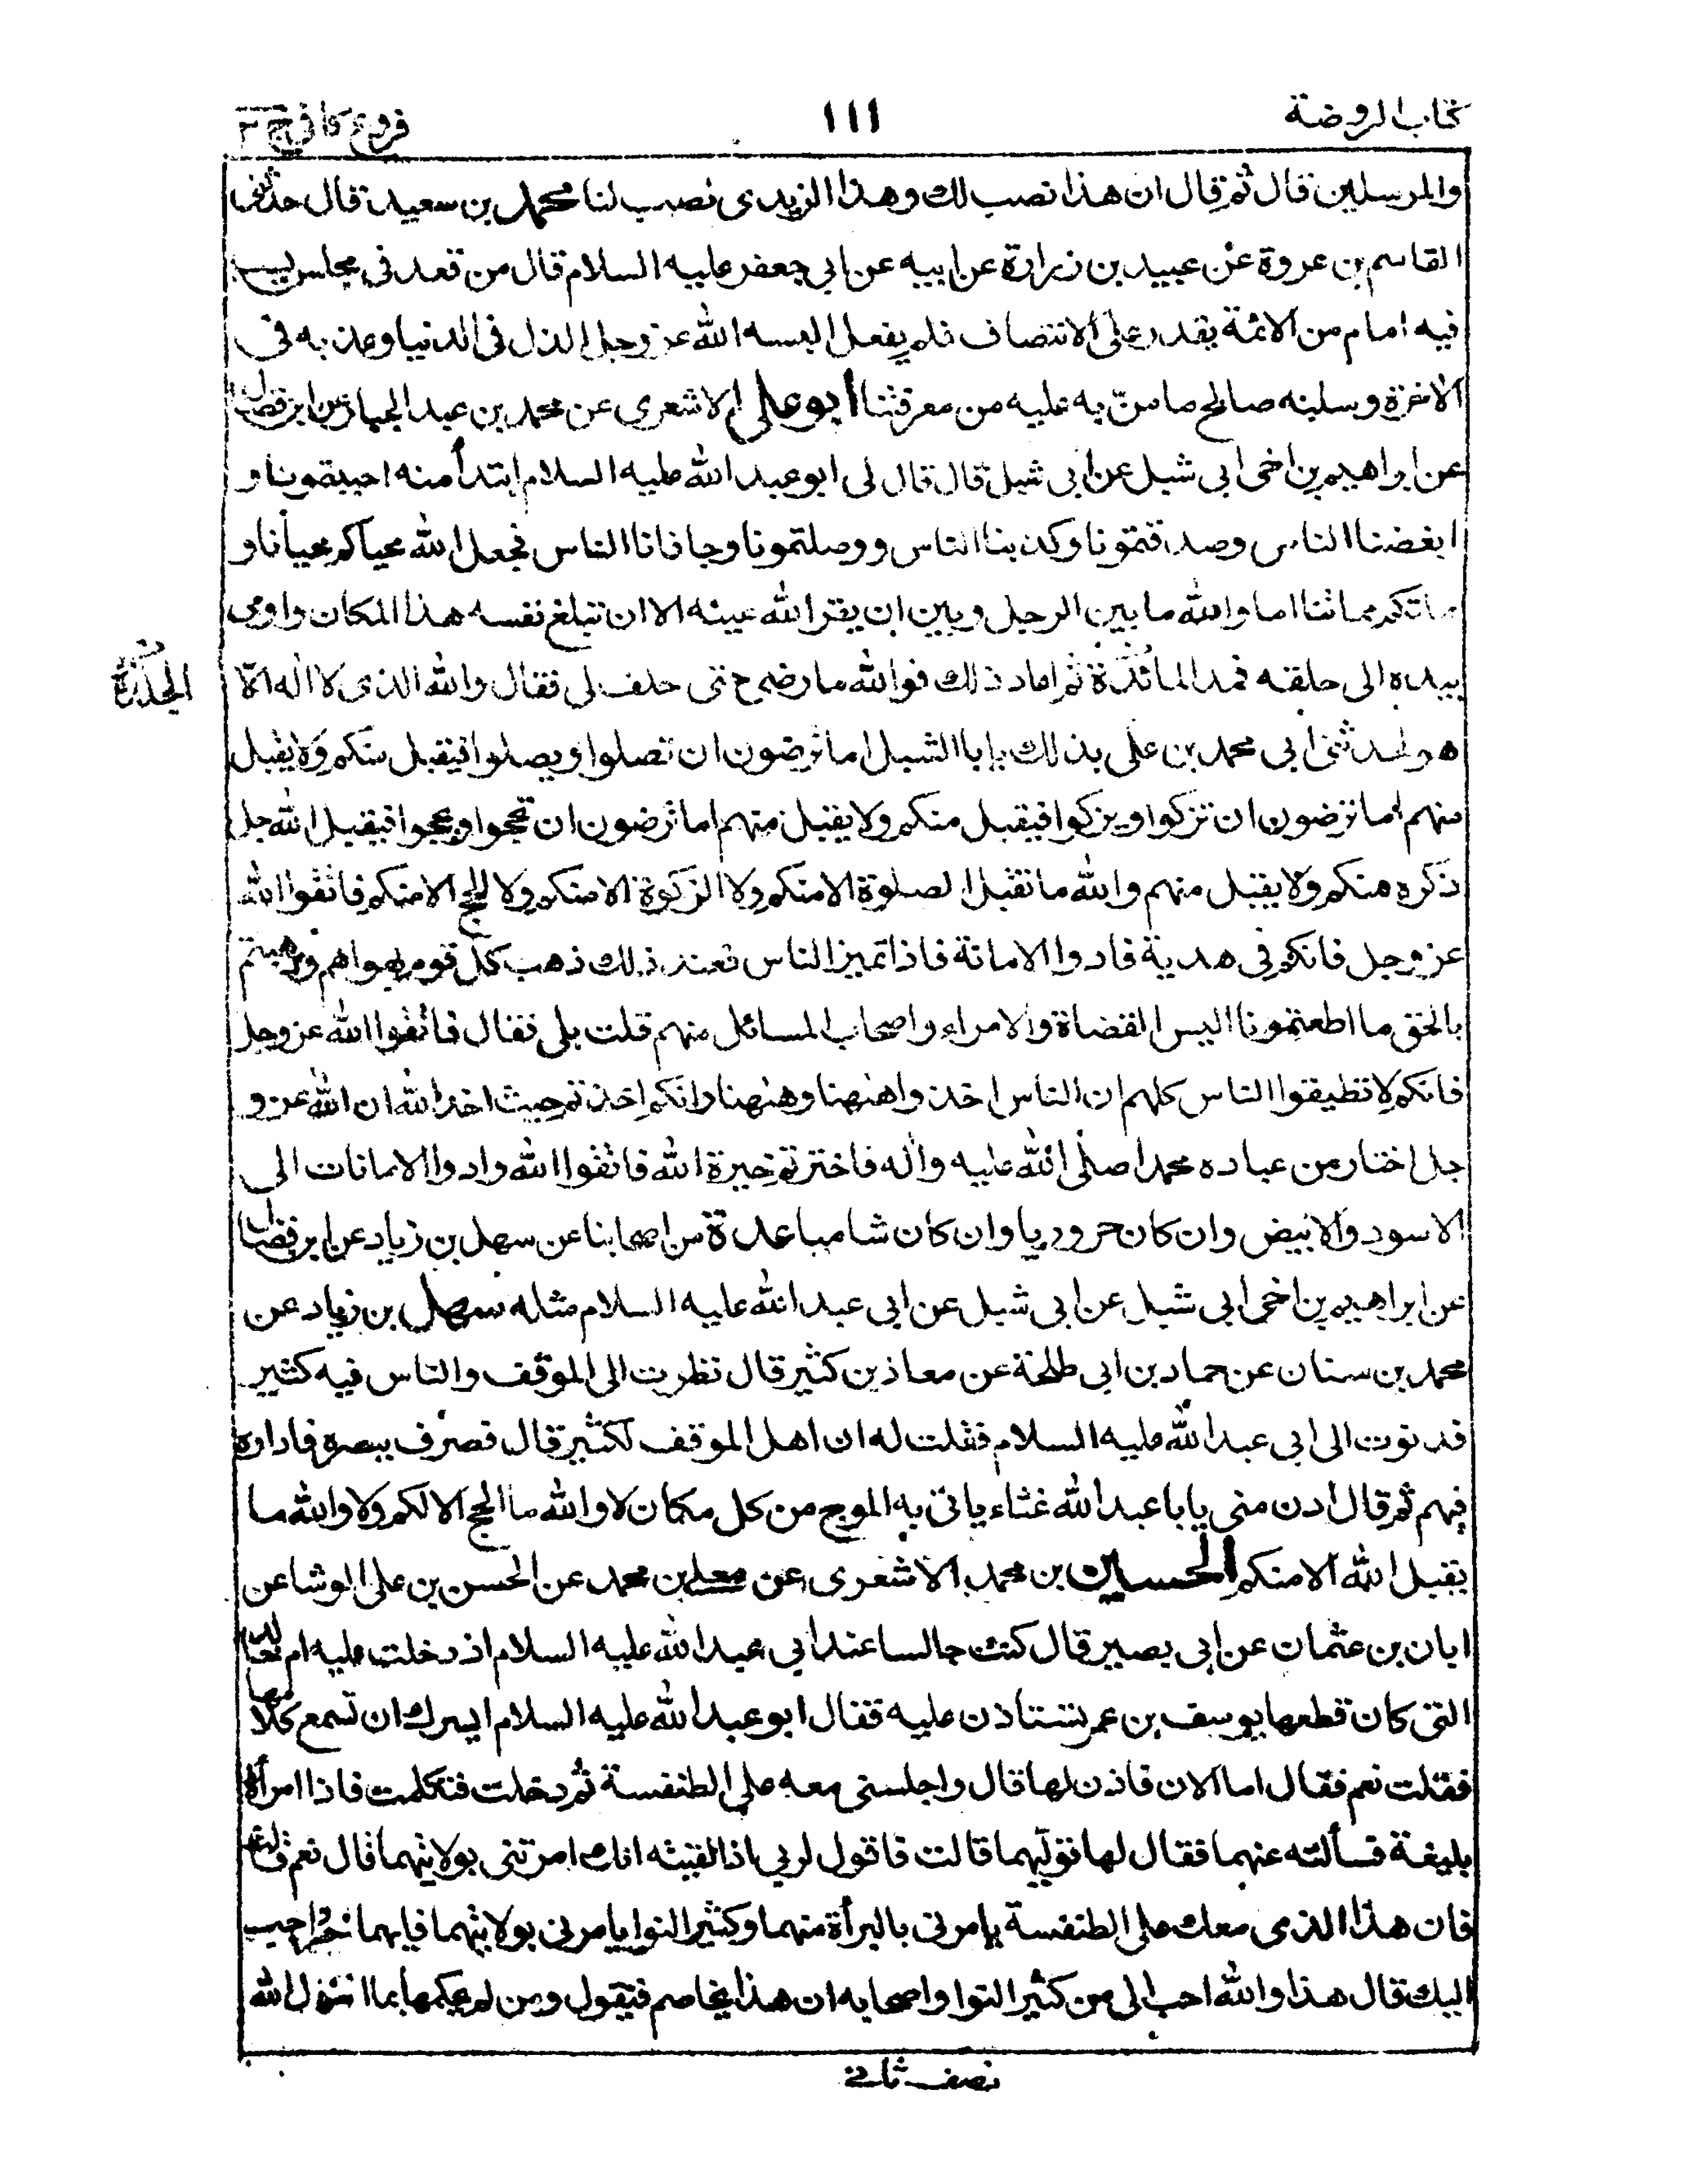 كتاب الروضة ١١١ فروع كافى ج ٣
والمرسلين قال ثم قال ان هذا نصب لك وهذا الزيدى نصب لنا محمد بن سعيد قال حدثنى
القاسم بن عروة عن عبيد بن زرارة عن ابيه عن ابى جعفر عليه السلام قال من قعد فى مجلس يسب
فيه امام من الائمة يقدر على الانتصاف فلم يفعل البسه الله عز وجل الذل فى الدنيا وعذبه فى
الاخرة وسلبه صالح ما منّ به عليه من معرفتنا ابو على الاشعرى عن محمد بن عبد الجبار عن ابن فضال
عن ابراهيم بن اخى ابى شبل عن ابى شبل قال قال لى ابو عبد الله عليه السلام ابتدأ منه احببتمونا و
ابغضنا الناس وصدقتمونا وكذبنا الناس ووصلتمونا وجافانا الناس فجعل الله محياكم محيانا و
مماتكم مماتنا اما والله ما بين الرجل وبين ان يقر الله عينه الا ان تبلغ نفسه هذا المكان واومى
بيده الى حلقه فمد الجلدة ثم اعاد ذلك فوالله ما رضى حتى حلف لى فقال والله الذى لا اله الّا
هو لحدثنى ابى محمد بن على بذلك يا با الشبل اما ترضون ان تصلوا ويصلوا فيقبل منكم ولا يقبل
منهم اما ترضون ان تزكوا ويزكوا فيقبل منكم ولا يقبل منهم اما ترضون ان تحجوا ويحجوا فيقبل الله جل
ذكره منكم ولا يقبل منهم والله ما تقبل الصلوة الا منكم ولا الزكوة الا منكم ولا الحج الا منكم فاتقوا الله
عز وجل فانكم فى هدنة فادوا الامانة فاذا تميز الناس فعند ذلك ذهب كل قوم بهواهم وذهبتم
بالحق ما اطعتمونا اليس القضاة والامراء واصحاب المسائل منهم قلت بلى فقال فاتقوا الله عز وجل
فانكم لا تطيقوا الناس كلهم ان الناس اخذوا ههنا وههنا وانكم اخذتم حيث اخذ الله ان الله عز و
جل اختار من عباده محمدا صلى الله عليه واله فاخترتم خيرة الله فاتقوا الله وادوا الامانات الى
الاسود والابيض وان كان حروريا وان كان شاميا عدة من اصحابنا عن سهل بن زياد عن ابن فضال
عن ابراهيم بن اخى ابى شبل عن ابى شبل عن ابى عبد الله عليه السلام مثله سهل بن زياد عن
محمد بن سنان عن حماد بن ابى طلحة عن معاذ بن كثير قال نظرت الى الموقف والناس فيه كثير
فدنوت الى ابى عبد الله عليه السلام فقلت له ان اهل الموقف لكثير قال فصرف ببصره فاداره
فيهم ثم قال ادن منى يا با عبد الله غثاء ياتى به الموج من كل مكان لا والله ما الحج الا لكم ولا والله ما
يقبل الله الا منكم الحسين بن محمد الاشعرى عن معلى بن محمد عن الحسن بن على الوشا عن
ابان بن عثمان عن ابى بصير قال كنت جالسا عند ابى عبد الله عليه السلام اذ دخلت عليه ام خالد
التى كان قطعها يوسف بن عمر تستاذن عليه فقال ابو عبد الله عليه السلام ايسرك ان تسمع كلامها
فقلت نعم فقال اما الان فاذن لها قال واجلسنى معه على الطنفسة ثم دخلت فتكلمت فاذا امرأة
بليغة فسألته عنهما فقال لها توليهما قالت فاقول لربى اذا لقيته انك امرتنى بولايتهما قال نعم قالت
فان هذا الذى معك على الطنفسة يامرنى بالبرأة منهما وكثير النوا يامرنى بولايتهما فايهما خير واحب
اليك قال هذا والله احب الى من كثير النوا واصحابه ان هذا يخاصم فيقول ومن لم يحكم بما انزل الله
نصف ثانى